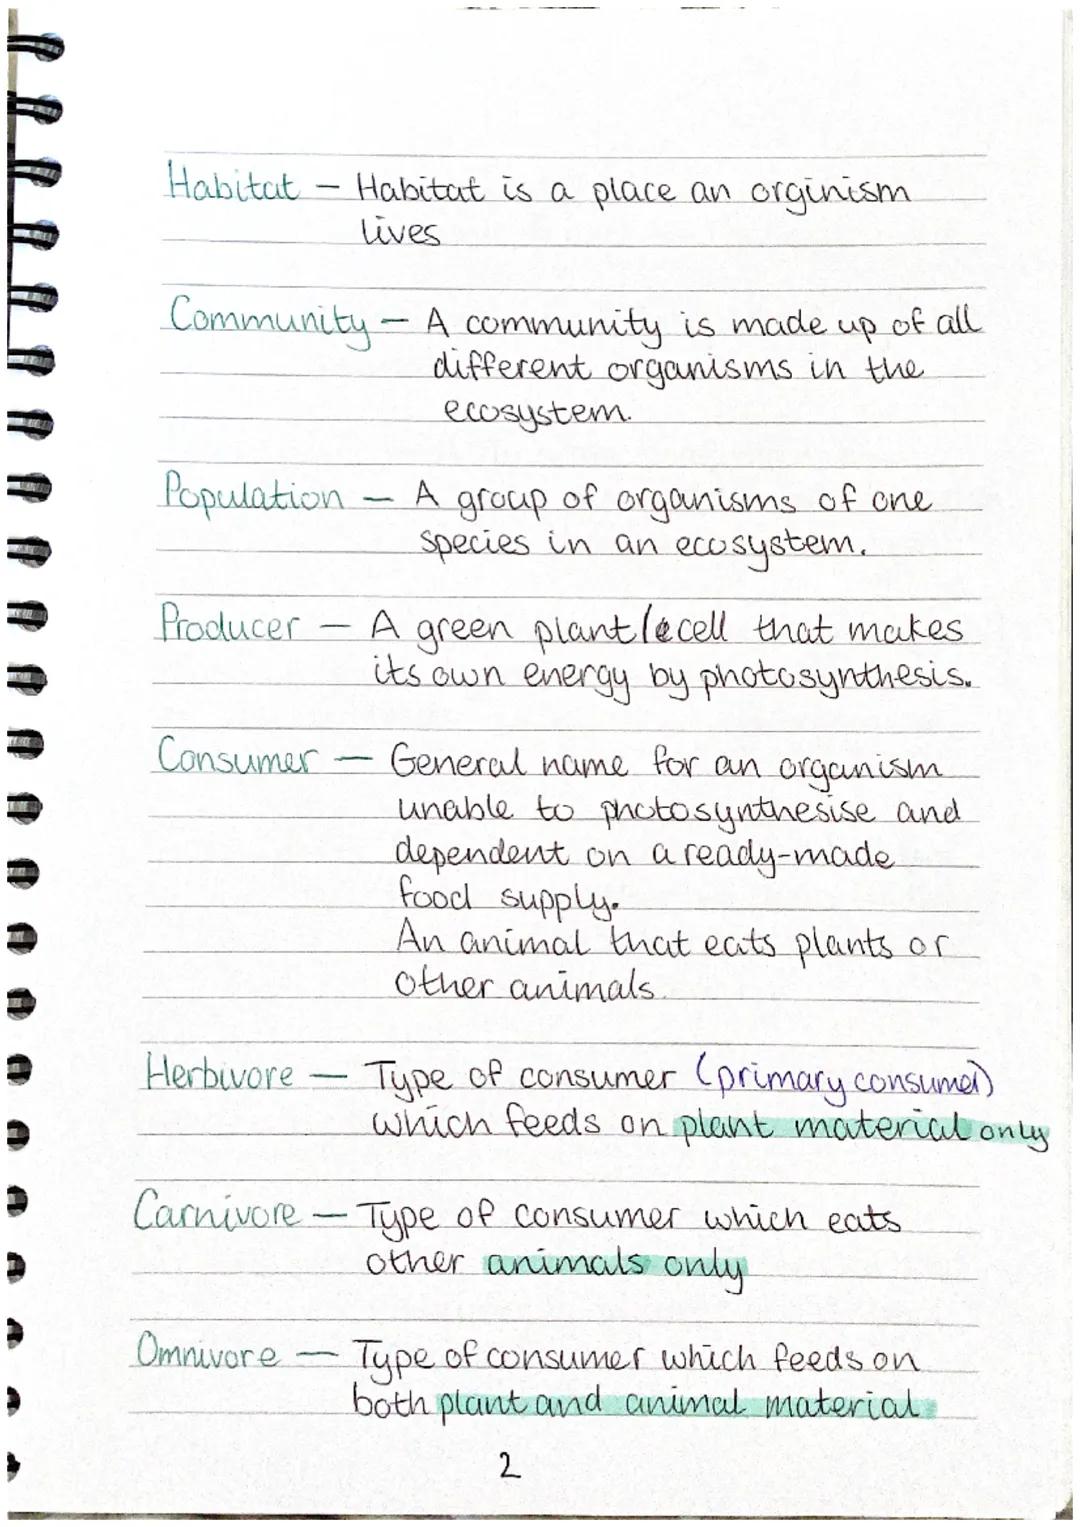 Habitat – Habitat is a place an orginism
lives
Community – A community is made up of all
different organisms in the
ecosystem.
Population – A group of organisms of one
species in an ecosystem.
Producer – A green plant/cell that makes
its own energy by photosynthesis.
Consumer – General name for an organism
unable to photosynthesise and
dependent on a ready-made
food supply.
An animal that eats plants or
other animals.
Herbivore – Type of consumer (primary consumer)
which feeds on plant material only
Carnivore – Type of consumer which eats
other animals only
Omnivore – Type of consumer which feeds on
both plant and animal material
2